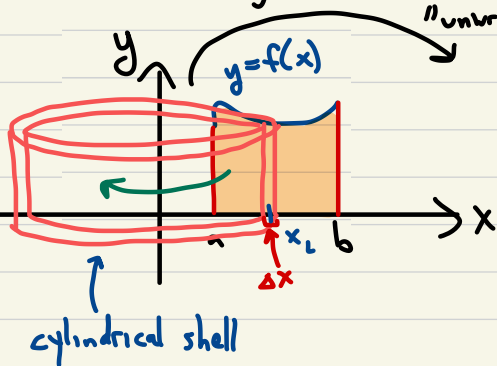 "unwr
y
y=f(x)
x
a
x_i
b
Δx
cylindrical shell